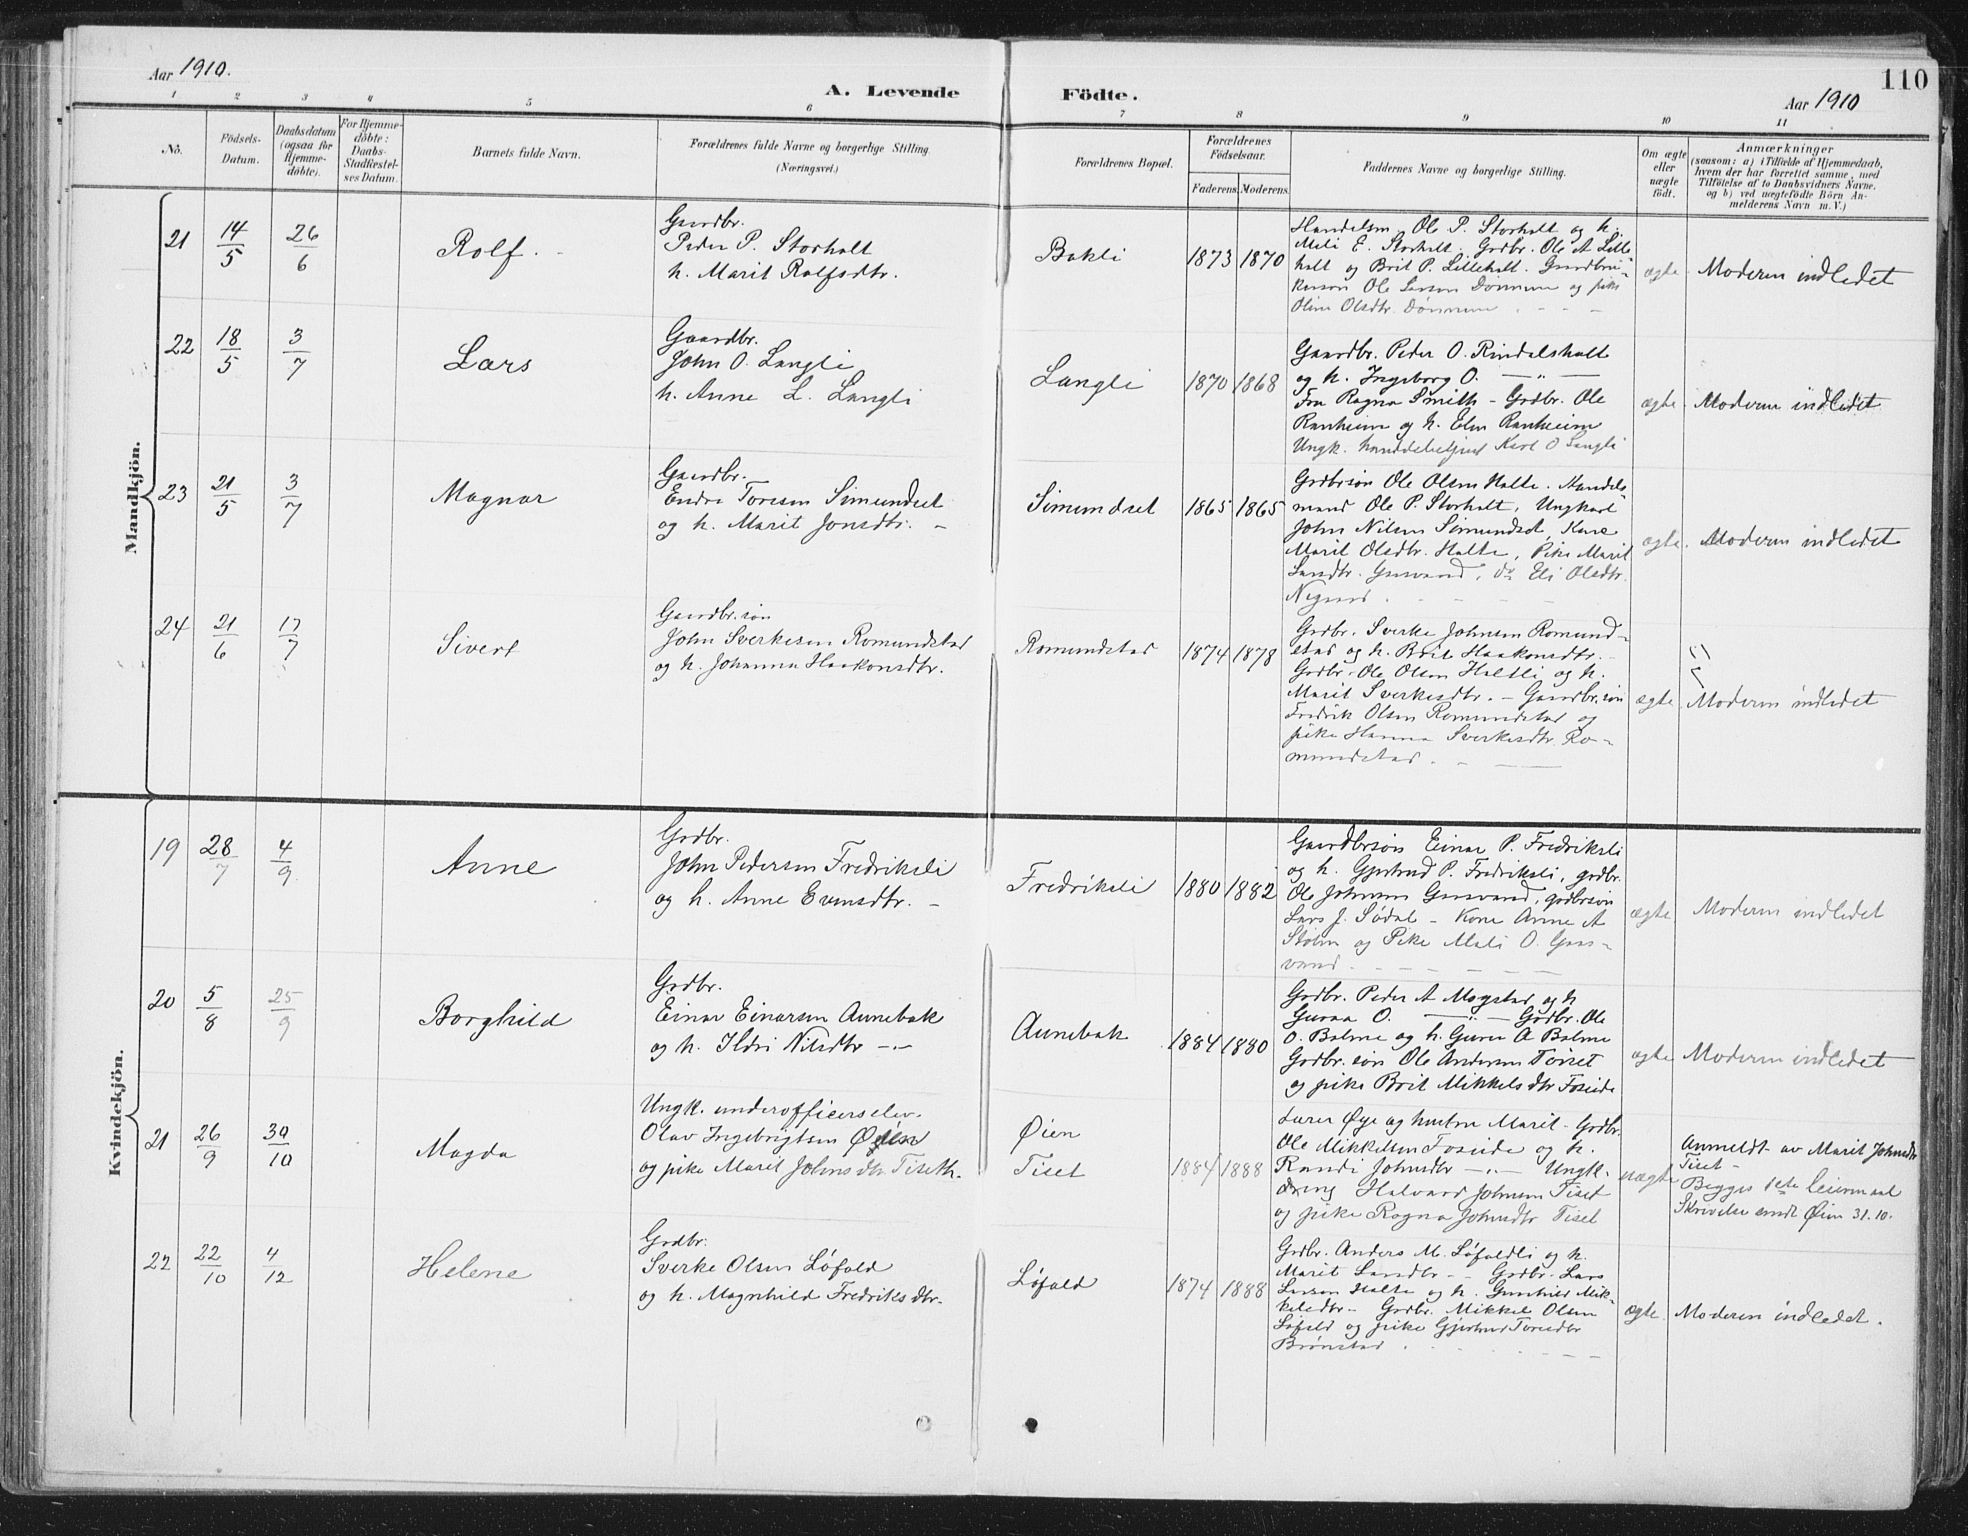 110
Aar 1910.
A. Levende Födte.
Aar 1910
1 2 3 4 5 6 7 8 9 10 11
No.
Födsels-
Datum.
Daabsdatum
(ogsaa for
Hjemme-
döbte).
For Hjemme-
döbte:
Daabs-
Stadfæstel-
ses Datum.
Barnets fulde Navn.
Forældrenes fulde Navne og borgerlige Stilling.
(Næringsvei.)
Forældrenes Bopæl.
Forældrenes
Födselsaar.
Faderens. Moderens.
Faddernes Navne og borgerlige Stilling.
Om ægte
eller
uægte
födt.
Anmærkninger
(saasom: a) i Tilfælde af Hjemmedaab,
hvem der har forrettet samme, med
Tilföielse af to Daabsvidners Navne,
og b) ved uægtefödte Börn An-
melderens Navn m. V.)
Mandkjön.
21 14/5 26/6 Rolf.
Gaardbr.
Peder P. Storholt
h. Marit Rolfsdtr.
Bakli 1873 1870
Handelsm. Ole P. Storholt og h.
Mali E. Storholt. Grdbr. Ole A Lille-
holt og Brit P. Lilleholt. Gaardbru-
kersøn Ole Larsen Dønnem og pike
Oline Olsdtr. Dønnem
ægte Moderen indledet
22 18/5 3/7 Lars
Gaardbr.
John O. Langli
h. Anne L. Langli
Langli 1870 1868
Gaardbr. Peder O. Rindalsholt
og h. Ingeborg O. — " —
Fru Ragna Smith - Grdbr. Ole
Ranheim og h. Elen Ranheim
Ungk. handelsbetjent Karl O Langli
ægte Moderen indledet
23 21/5 3/7 Magnar
Gaardbr.
Endre Toresen Simundset
og h. Marit Jonsdtr. -
Simundset 1865 1865
Grdbrsøn Ole Olsen Halte. Handels-
mand Ole P. Storholt, Ungkarl
John Nilsen Simundset, Kone
Marit Olsdtr. Halte, Pike Marit
Larsdtr. Grusvand, do Eli Olsdtr.
ægte. Moderen indledet
24 21/6 17/7 Sivert
Gaardbr.søn
John Sverkesen Romundstad
og h. Johanna Haakonsdtr.
Romundstad 1874 1878
Grdbr. Sverke Johnsen Romund-
stad og h. Brit Haakonsdtr. -
Grdbr. Ole Olsen Holtli og h.
Marit Sverkesdtr. - Gaardbr.søn
Fredrik Olsen Romundstad og
pike Hanna Sverkesdtr. Ro-
mundstad.
ægte. Moderen indledet
Kvindekjön.
19 28/7 4/9 Anne
Grdbr.
John Pedersen Fredriksli
og h. Anne Evensdtr. -
Fredriksli 1880 1882
Gaardbrsøn Einar P. Fredriksli
og h. Gjertrud P. Fredriksli, grdbr.
Ole Johnsen Grusvand, grdbrsøn
Lars J. Sødal - Kone Anne A
Stølen og Pike Mali O. Grus-
vand.
ægte Moderen indledet
20 5/8 25/9 Borghild
Grdbr.
Einar Einarsen Aunebak
og h. Ildri Nilsdtr -"-
Aunebak 1884 1880
Grdbr. Peder A Mogstad og h
Guraa O. — " — Grdbr. Ole
O. Bolme og h. Guru A Bolme
Grdbr. søn Ole Andersen Tøiset
og pike Brit Mikkelsdtr Foseide
ægte Moderen indledet
21 26/9 30/10 Magda
Ungk. underofficerselev.
Olav Ingebrigtsen Øien
og pike Marit Johnsdtr Tiseth.
Øien
Tiset 1884 1888
Lærer Øye og hustru Marit - Grdbr.
Ole Mikkelsen Foseide og h.
Randi Johnsdtr -"- Ungk.
dreng Halvard Johnsen Tiset
og pike Ragna Johnsdtr Tiset
uægte Anmeldt av Marit Johnsdtr
Tiset -
Begges 1ste leiermaal
Skrivelse sendt Øien 31.10.
22 22/10 4/12 Helene
Grdbr.
Sverke Olsen Løfald
og h. Magnhild Fredriksdtr.
Løfald 1874 1888
Grdbr. Anders M. Løfaldli og h.
Marit Larsdtr - - Grdbr. Lars
Larsen Halte og h. Gunhild Mik-
kelsdtr - Grdbr. Mikkel Olsen
Løfald og pike Gjertrud Toresdtr
Brønstad
ægte. Moderen indledet.